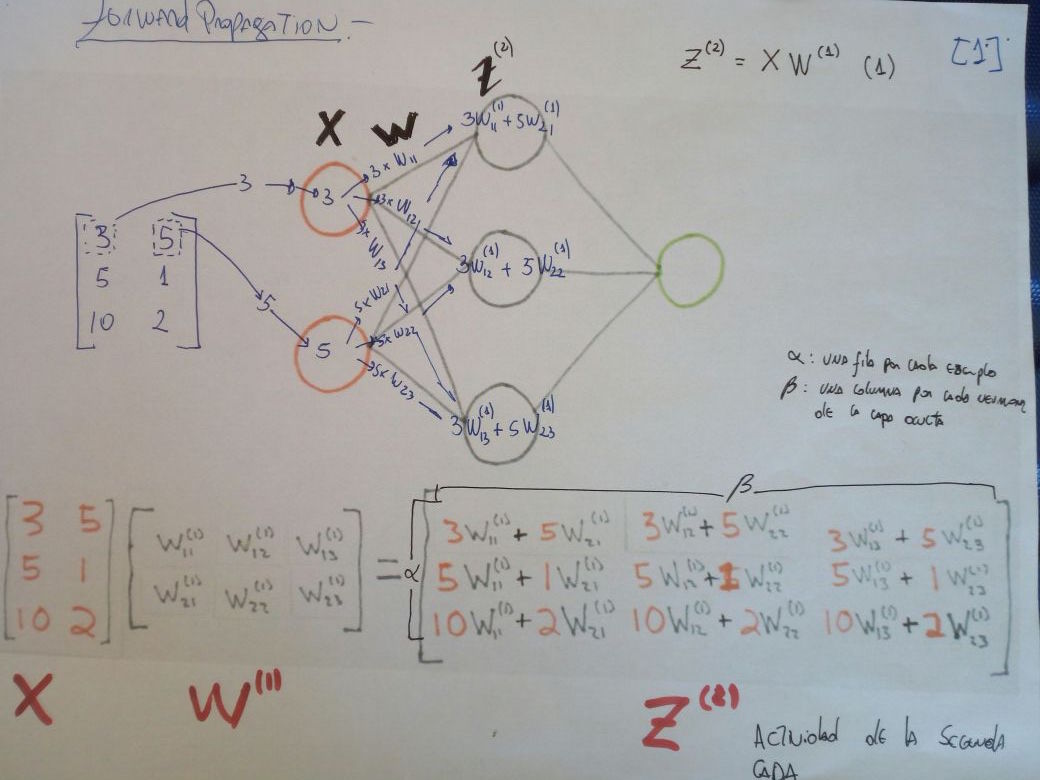 Forward Propagation.-
Z⁽²⁾ = X W⁽¹⁾ (1)
[1].
Z⁽²⁾
X W
3W₁₁⁽¹⁾ + 5W₂₁⁽¹⁾
3 × W₁₁
3
3
3 × W₁₂
3 × W₁₃
3 5
5 1
10 2
3W₁₂⁽¹⁾ + 5W₂₂⁽¹⁾
5
5 × W₂₁
5
5 × W₂₂
5 × W₂₃
3W₁₃⁽¹⁾ + 5W₂₃⁽¹⁾
α : una fila por cada ejemplo
β : una columna por cada neurona
de la capa oculta
β
α
3 5 W₁₁⁽¹⁾ W₁₂⁽¹⁾ W₁₃⁽¹⁾ = 3W₁₁⁽¹⁾ + 5W₂₁⁽¹⁾ 3W₁₂⁽¹⁾ + 5W₂₂⁽¹⁾ 3W₁₃⁽¹⁾ + 5W₂₃⁽¹⁾
5 1 W₂₁⁽¹⁾ W₂₂⁽¹⁾ W₂₃⁽¹⁾ 5W₁₁⁽¹⁾ + 1W₂₁⁽¹⁾ 5W₁₂⁽¹⁾ + 1W₂₂⁽¹⁾ 5W₁₃⁽¹⁾ + 1W₂₃⁽¹⁾
10 2 10W₁₁⁽¹⁾ + 2W₂₁⁽¹⁾ 10W₁₂⁽¹⁾ + 2W₂₂⁽¹⁾ 10W₁₃⁽¹⁾ + 2W₂₃⁽¹⁾
X W⁽¹⁾ Z⁽²⁾
Actividad de la Segunda
CADA